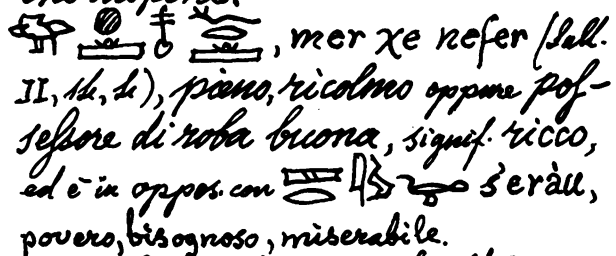 , mer χe nefer (Sall.
II, 14, 4), pieno, ricolmo oppure pos-
sessore di roba buona, signif. ricco,
ed è in oppos. con s'eràu,
povero, bisognoso, miserabile.